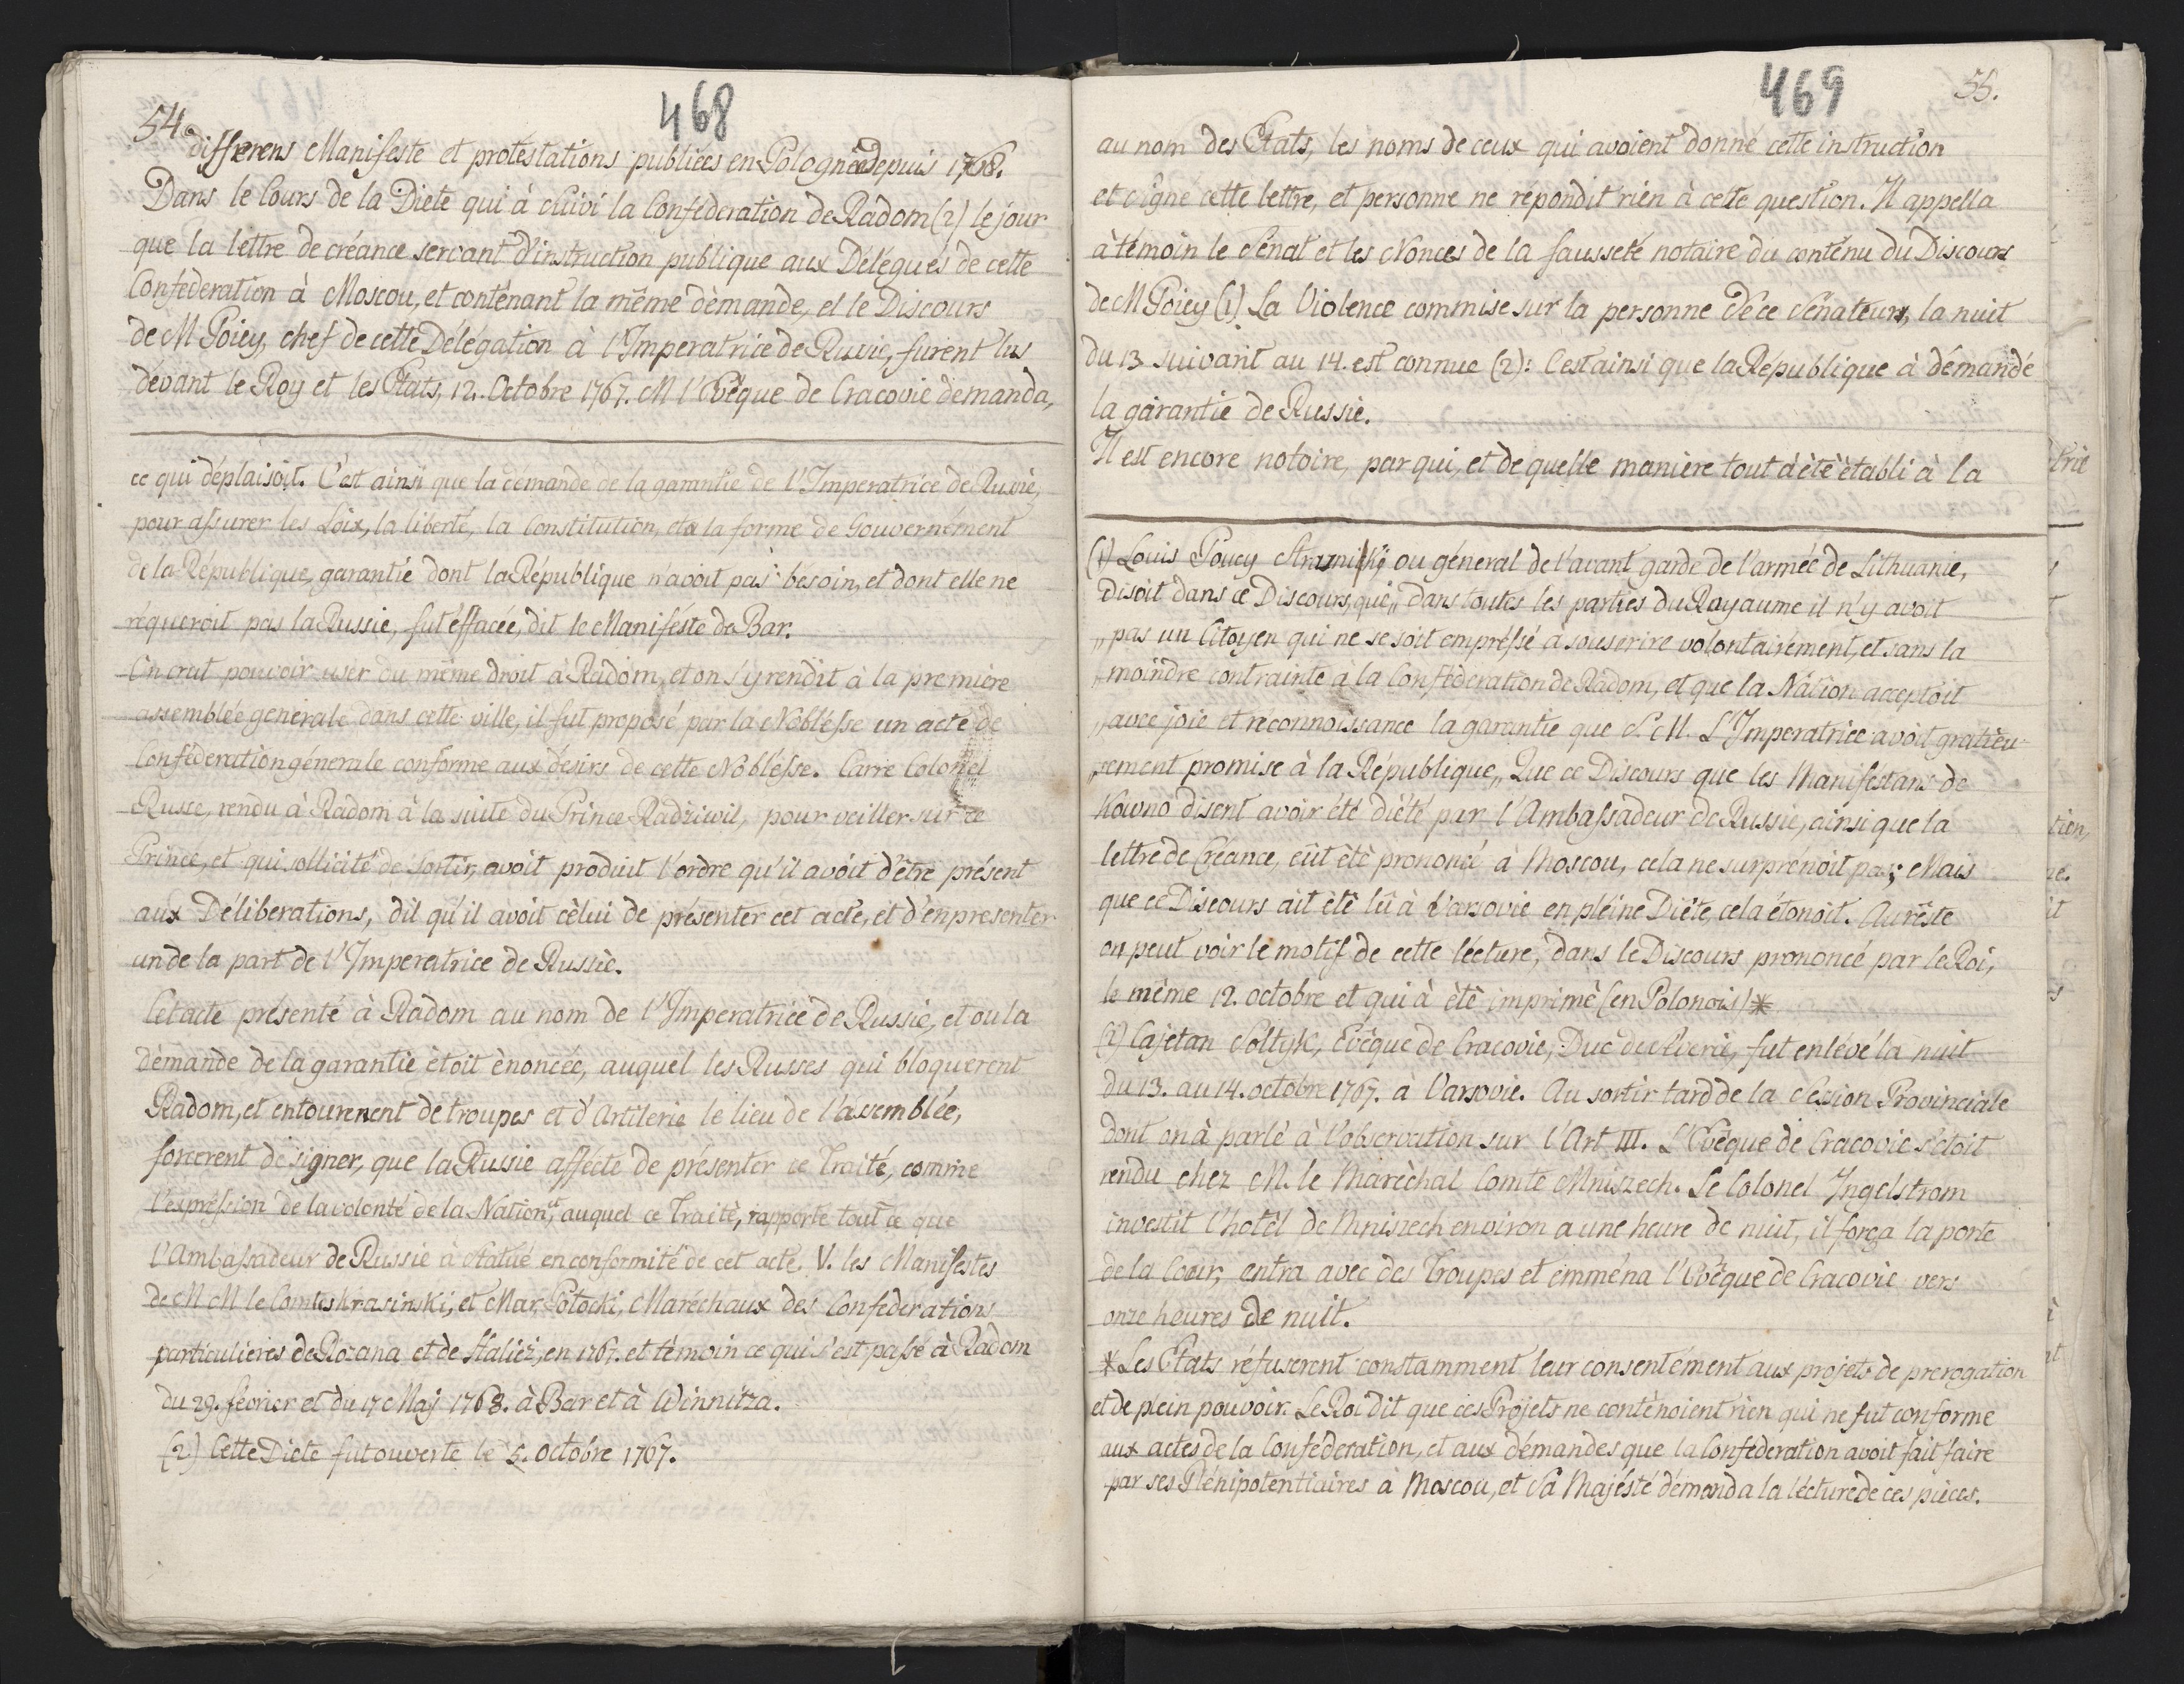 54.
468
differens Manifeste et protéstations publiées en Pologne depuis 1768.
Dans le Cours de la Diete qui à suivi la Confédération de Radom (2) le jour
que la lettre de créance servant d'instruction publique aux Délégués de cette
Confédération à Moscou, et conténant la même démande, et le Discours
de M Poiey, chef de cette Délégation à l'Imperatrice de Russie, furent lus
dévant le Roy et les Etats, 12. Octobre 1767. M l'Evêque de Cracovie démanda,
ce qui déplaisoit. C'est ainsi que la démande de la garantie de l'Imperatrice de Russie,
pour assurer les Loix, la liberté, la Constitution, et la forme de Gouvernément
de la République, garantie dont la République n'avoit pas besoin, et dont elle ne
réqueroit pas la Russie, fut éffacée, dit le Maniféste de Bar.
On crut pouvoir user du même droit à Radom, et on s'y rendit à la premiere
assemblée generale dans cette ville, il fut proposé par la Noblésse un acte de
Confédération génerale conforme aux désirs de cette Noblésse. Carre Colonel
Russe, rendu à Radom à la suite du Prince Radziwil, pour veiller sur ce
Prince, et qui sollicité de sortir, avoit produit l'ordre qu'il avoit d'être présent
aux Déliberations, dit qu'il avoit célui de présenter cet acte, et d'en presenter
un de la part de l'Imperatrice de Russie.
Cet acte présenté à Radom au nom de l'Imperatrice de Russie, et ou la
démande de la garantie étoit énoncée, auquel les Russes qui bloquerent
Radom, et entourerent de troupes et d'Artilerie le lieu de l'assemblée,
forcerent de signer, que la Russie affécte de présenter ce Traité, comme
l'expréssion de la volonté de la Nation, et auquel ce Traité, rapporte tout ce que
l'Ambassadeur de Russie à statué en conformité de cet acte. V. les Manifestes
de M M le Comtes Krasinski, et Mar. Potocki, Maréchaux des Confédérations
particulieres de Rozana et de Halicz, en 1767. et témoin ce qui s'est passé à Radom
du 29. fevrier et du 17 Maj 1768. à Bar et à Winnitza.
(2) Cette Diete fut ouverte le 5. octobre 1767.
469
55.
au nom des Etats, les noms de ceux qui avoient donné cette instruction
et signé cette lettre, et personne ne répondit rien à cette question. Il appella
à témoin le Sénat et les Nonces de la fausseté notaire du conténu du Discours
de M Poiey (1) La Violence commise sur la personne de ce Sénateur, la nuit
du 13 suivant au 14. est connue (2): C'est ainsi que la République à démandé
la garantie de Russie.
Il est encore notoire, par qui, et de quelle maniere tout à été établi à la
(1) Louis Poucy ou géneral de l'avant garde de l'armée de Lithuanie,
disoit dans ce Discours, que „ dans toutes les parties du Royaume il n'y avoit
„ pas un Citoyen qui ne se soit empréssé à souscrire volontairément, et sans la
„ moindre contrainte à la Confédération de Radom, et que la Nation acceptoit
„ avec joie et reconnoissance la garantie que S. M. L'Imperatrice avoit gratieu-
„ sement promise à la République „ Que ce Discours que les Maniféstans de
Kowno disent avoir été dicté par l'Ambassadeur de Russie, ainsi que la
lettre de Créance, eût été prononcé à Moscou, cela ne surprenoit pas; Mais
que ce Discours ait été lû à Varsovie en pléine Diéte, cela étonoit. Au réste
on peut voir le motif de cette lécture, dans le Discours prononcé par le Roi,
le même 12. octobre et qui à été imprimé (en Polonois) *
(2) Cajetan Soltyk, Evêque de Cracovie, Duc de Severie, fut enlévé la nuit
du 13. au 14. octobre 1767. à Varsovie. Au sortir tard de la Session Provinciale
dont on à parlé à l'observation sur l'Art III. L'Evêque de Cracovie s'étoit
rendu chez M. le Maréchal Comte Mniszech. Le Colonel Ingelstrom
investit l'hotél de Mniszech environ a une heure de nuit, il força la porte
de la Cour, entra avec des Troupes et emména l'Evêque de Cracovie vers
onze heures de nuit.
* Les Etats réfuserent constamment leur consentément aux projets de prerogation
et de plein pouvoir. Le Roi dit que ces Projets ne conténoient rien qui ne fut conforme
aux actes de la Confédération, et aux démandes que la Confédération avoit fait faire
par ses Plénipotentiaires à Moscou, et Sa Majésté démanda la lécture de ces pièces.